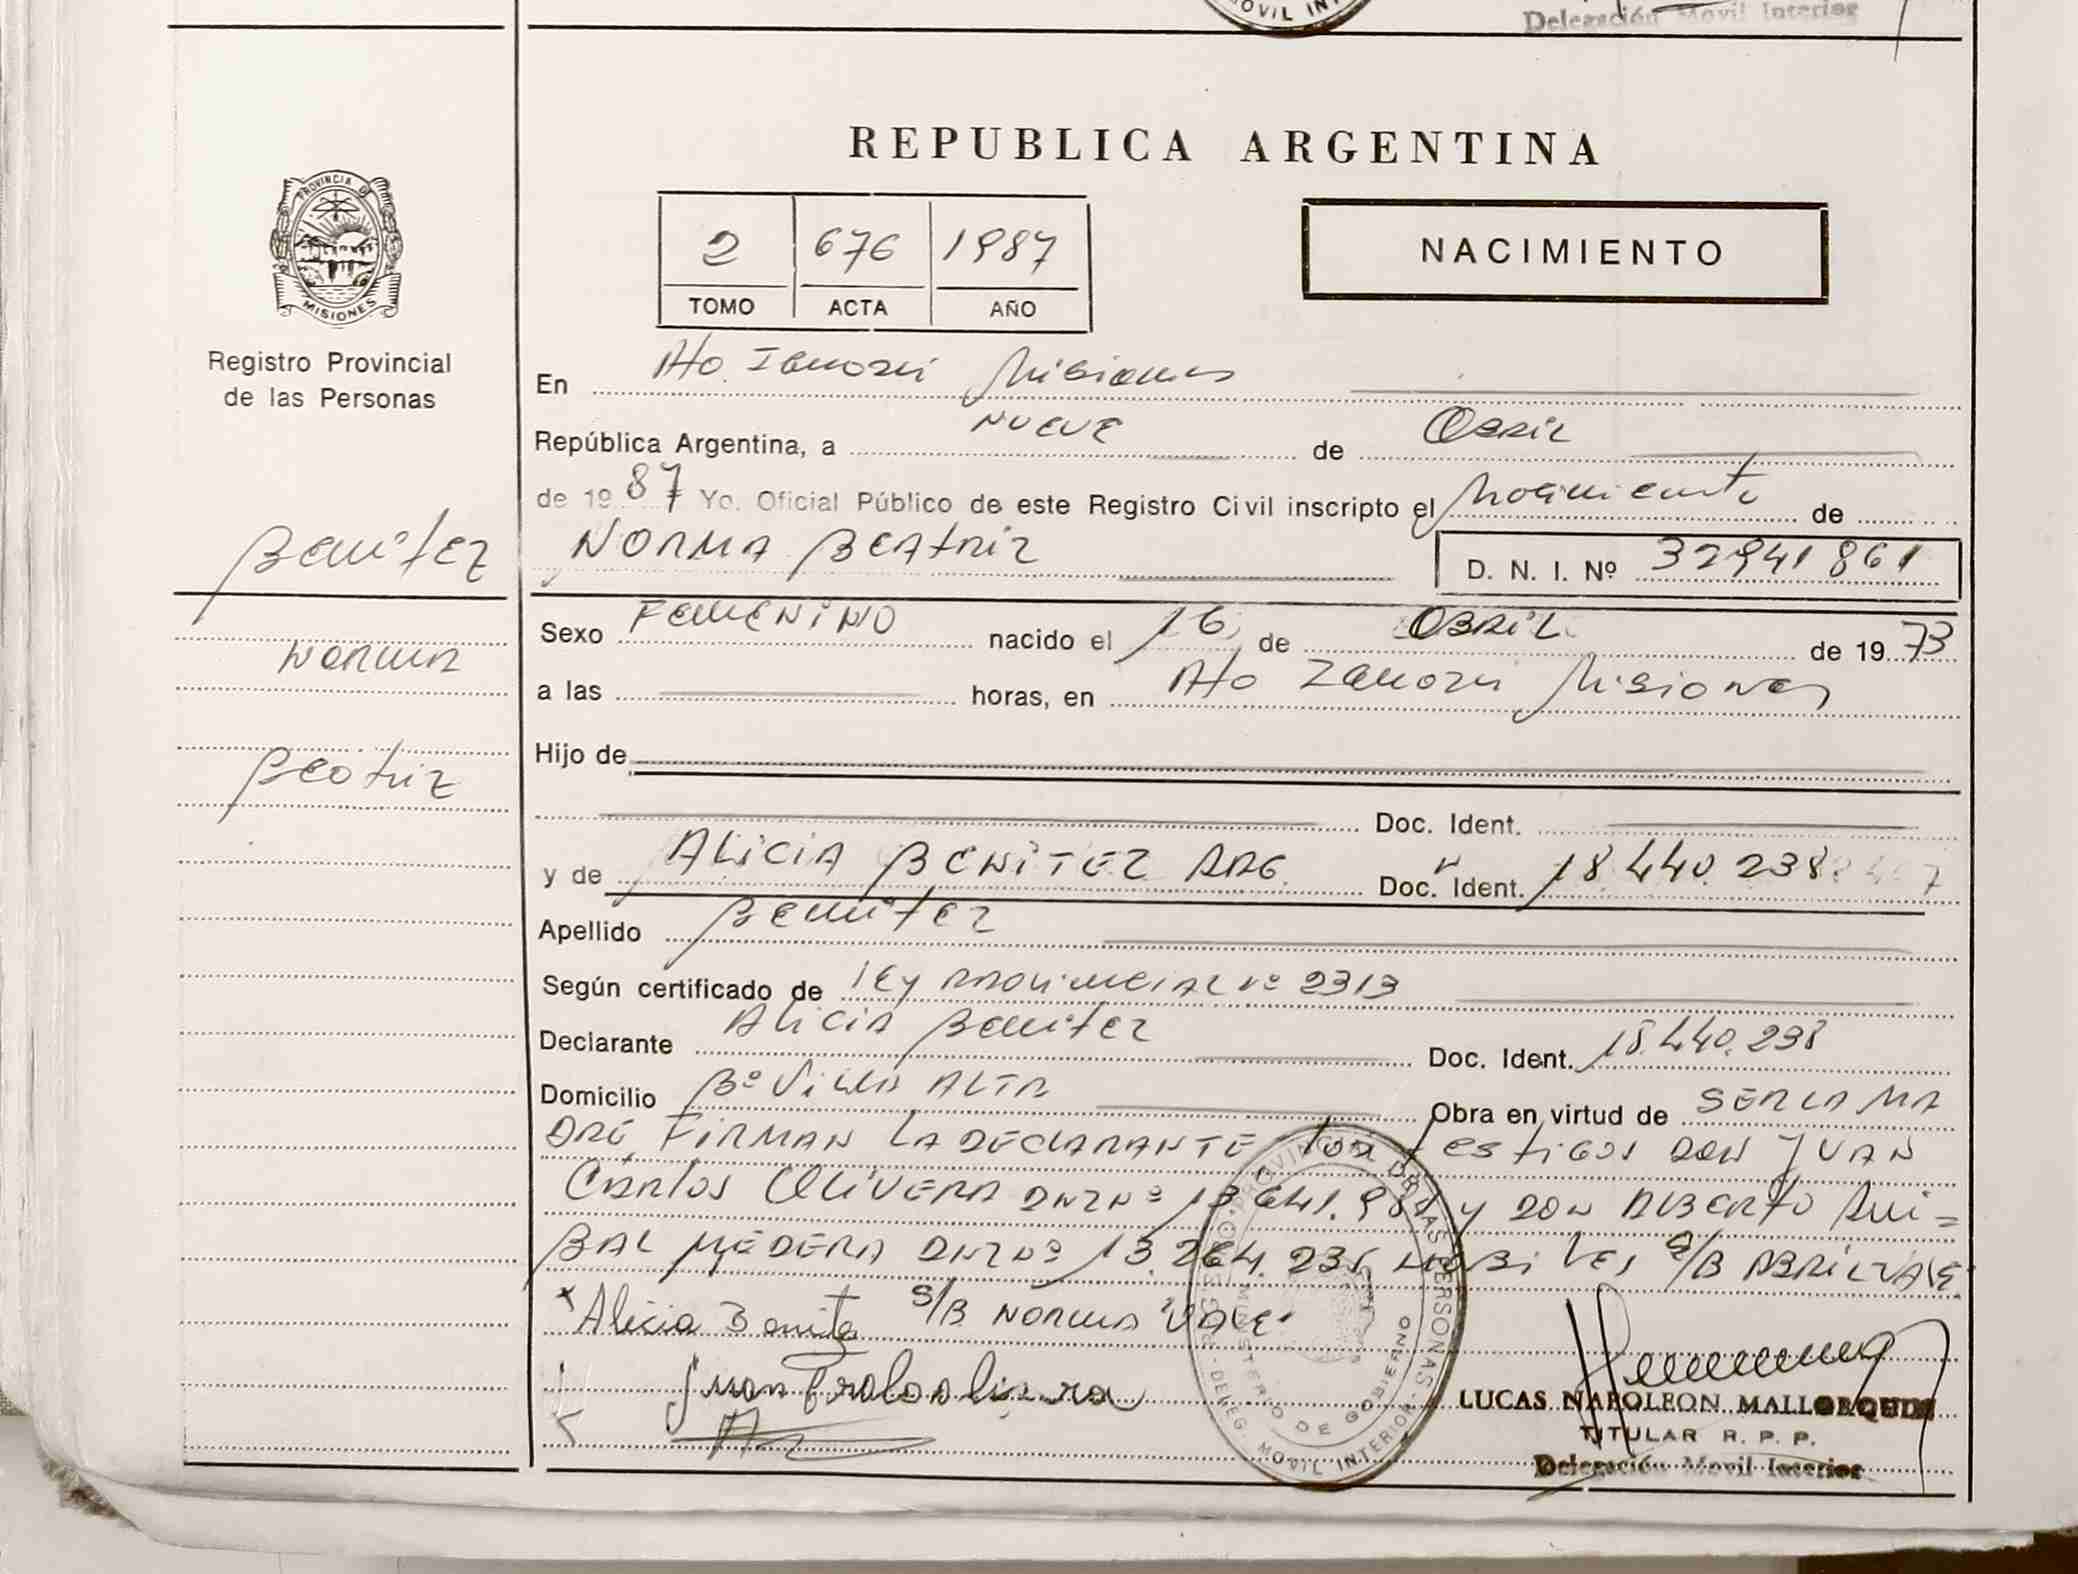 MOVIL IN
Delegación Movil Interior
REPUBLICA ARGENTINA
PROVINCIA D
MISIONES
Registro Provincial
de las Personas
2 676 1987
TOMO ACTA AÑO
NACIMIENTO
En Pto. Iguazú Misiones
República Argentina, a NUEVE de Abril
de 1987 Yo. Oficial Público de este Registro Civil inscripto el Nacimiento de
Benitez
NORMA BEATRIZ
D. N. I. Nº 32941861
Sexo FEMENINO nacido el 16 de ABRIL de 1973
Norma
a las horas, en Pto Iguazú Misiones
Beatriz
Hijo de
Doc. Ident.
y de ALICIA BENITEZ ARG. Doc. Ident. 18.440.238
Apellido Benitez
Según certificado de LEY PROVINCIAL Nº 2313
Declarante Alicia Benitez Doc. Ident. 18.440.238
Domicilio Bº Villa ALTA Obra en virtud de SER LA MA
DRE FIRMAN LA DECLARANTE los testigos DON JUAN
Carlos Olivera DNI Nº 13.641.981 y DON ALBERTO Ani=
BAL MEDERA DNI Nº 13.264.235 HABILES S/B ABRIL VALE
x Alicia Benitez S/B NORMA VALE.
LUCAS NAPOLEON MALLORQUIN
TITULAR R. P. P.
Delegación Movil Interior
REGISTRO PROVINCIAL DE LAS PERSONAS
MINISTERO DE GOBIERNO
DELEG. MOVIL INTERIOR